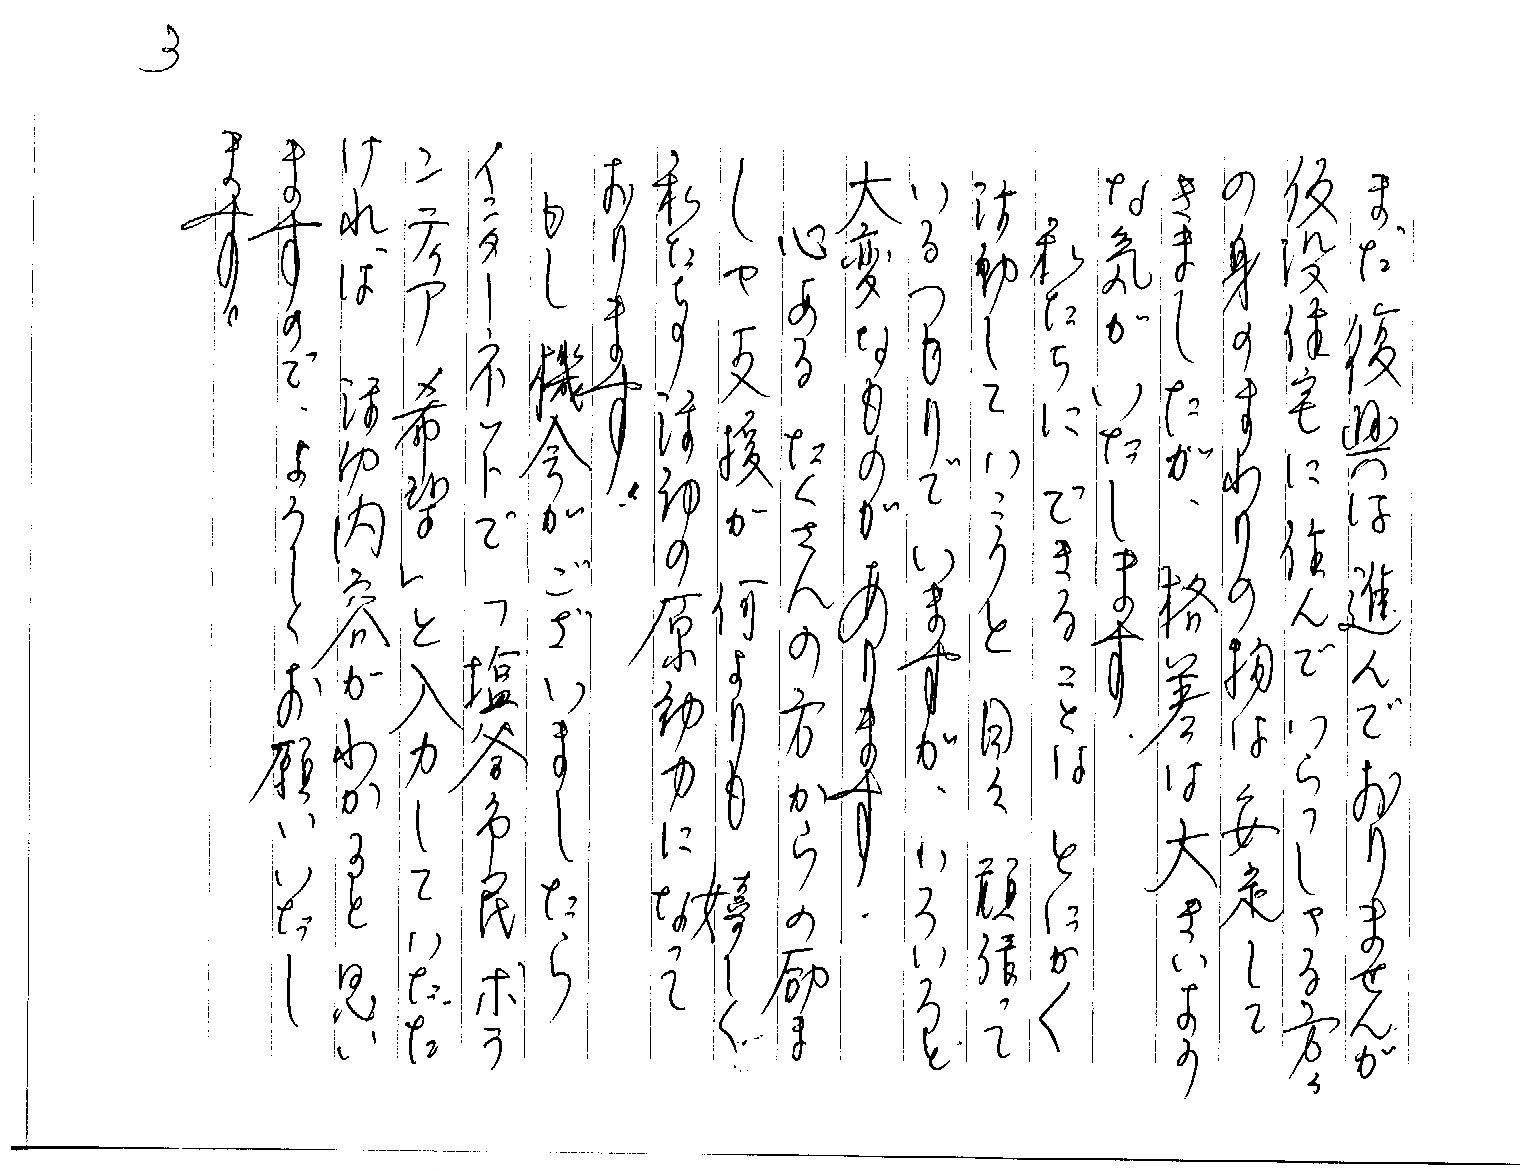 3
まだ復興は進んでおりませんが
仮設住宅に住んでいらっしゃる方々
の身のまわりの物は安定して
きましたが、格差は大きいよう
な気がいたします.
私たちにできることはとにかく
活動していこうと日々頑張って
いるつもりでいますが、いろいろと
大変なものがあります.
心あるたくさんの方からの励ま
しや支援が何よりも嬉しく
私たち活動の原動力になって
おります.
もし機会がございましたら
インターネットで「塩釜市民ボラ
ンティア希望」と入力していただ
ければ 活動内容がわかると思い
ますので、よろしくお願いいたし
ます。